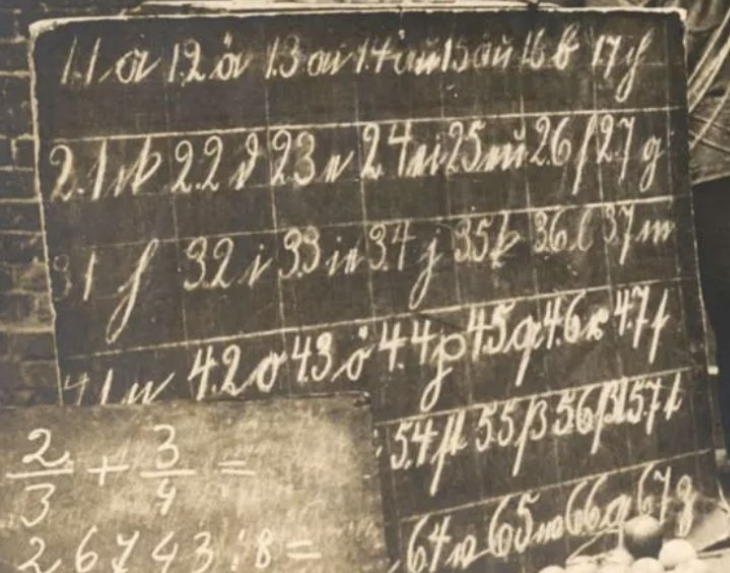 11 a 12 ä 13 ai 14 au 15 äu 16 b 17 ch
2.1 ck 2.2 d 23 e 2.4 ei 25 eu 2.6 f 2.7 g
31 h 32 i 33 ie 34 j 35 k 36 l 37 m
41 n 4.2 o 43 ö 4.4 p 45 q 4.6 r 4.7 ſ
54 55 56 57 t
64 v 65 w 66 67 z
2/3 + 3/4 =
26743:8=